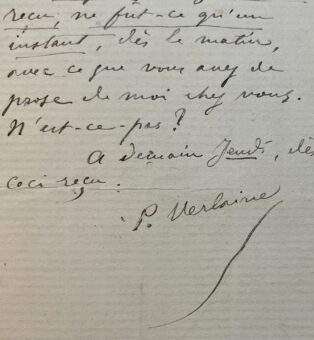 reçu, ne fût-ce qu'un
instant, dès le matin,
avec ce que vous avez de
prose de moi chez vous.
N'est-ce-pas?
A demain Jeudi, dès
ceci reçu.
P. Verlaine